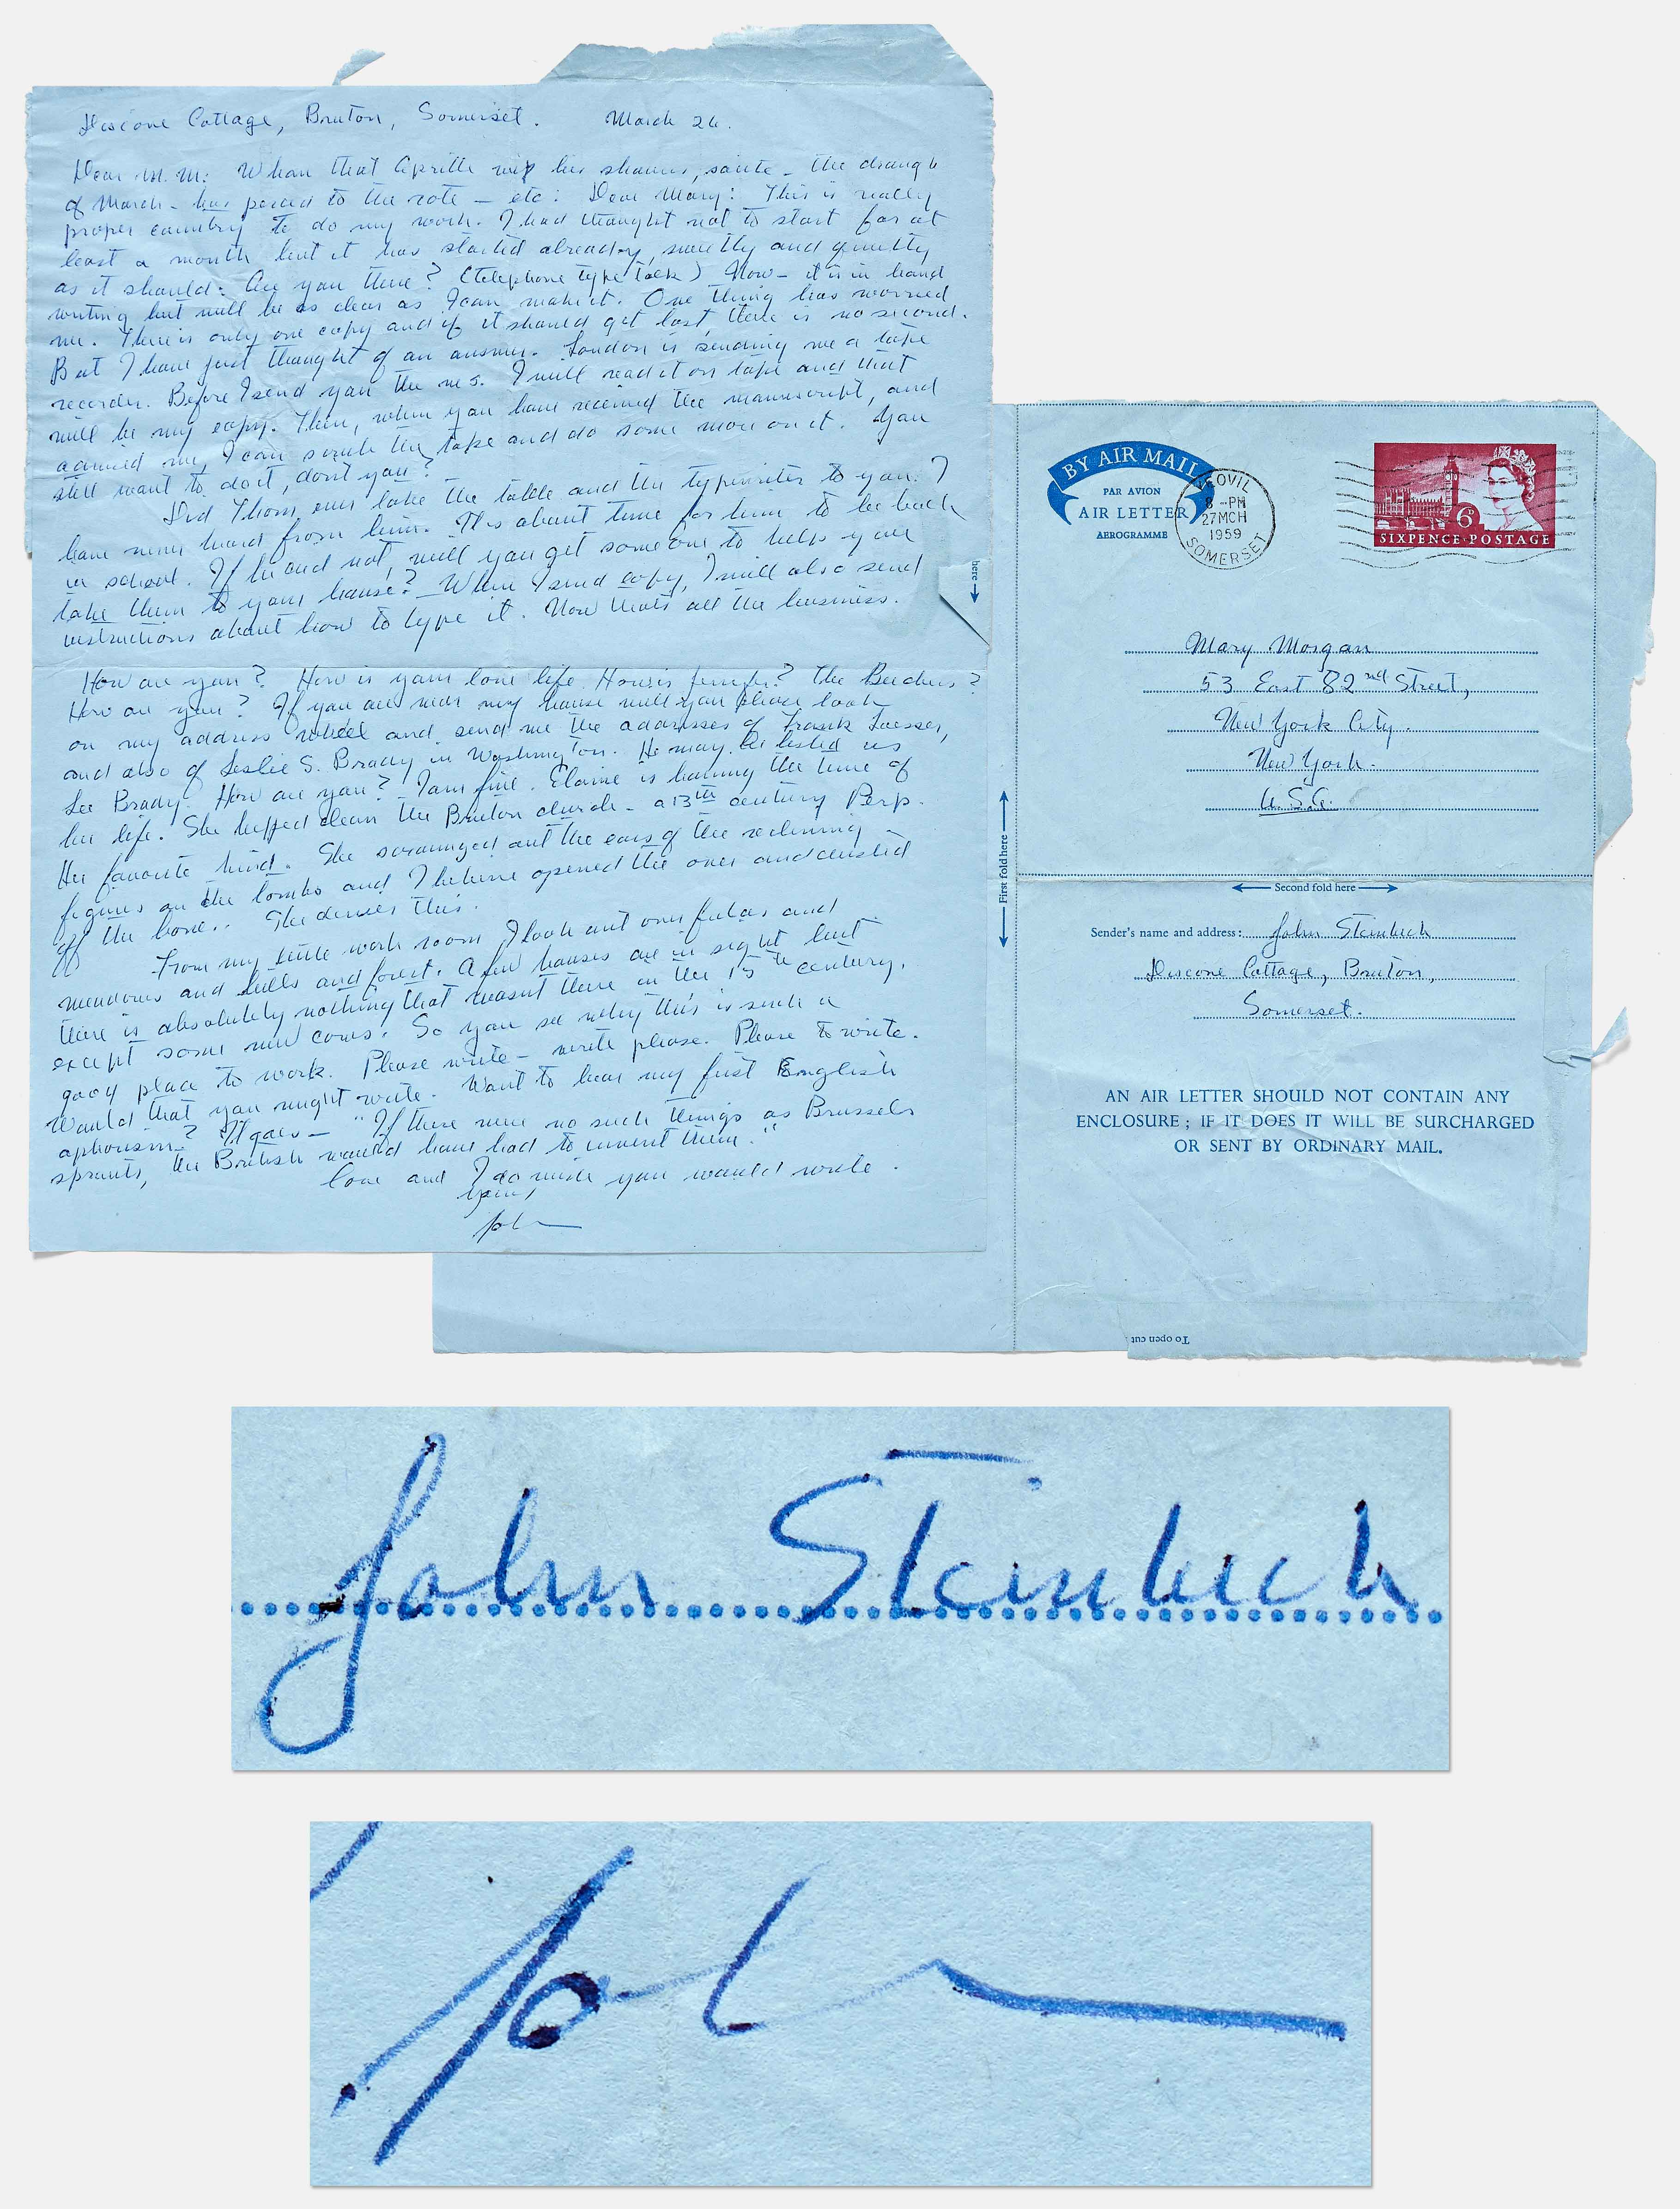 Discove Cottage, Bruton, Somerset. March 26.
Dear M.M: Whan that Aprille wip his shoures, soute - the draugh
of March - has perced to the rote - etc: Dear Mary: This is really
proper country to do my work. I had thought not to start for at
least a month but it has started already, sweetly and quietly
as it should: Are you there? (telephone type talk) Now - it is in hand
writing but will be as clear as I can make it. One thing has worried
me. There is only one copy and if it should get lost, there is no second.
But I have just thought of an answer. London is sending me a tape
recorder. Before I send you the ms. I will read it on tape and that
will be my copy. Then, when you have received the manuscript, and
advised me, I can scrub the tape and do some more on it. You
still want to do it, don't you?
Did Thom ever take the table and the typewriter to you? I
have never heard from him. It's about time for him to be back
in school. If he did not, will you get someone to help you
take them to your house? When I send copy, I will also send
instructions about how to type it. Now that's all the business.
How are you? How is your love life. How is ? The ?
How are you? If you are near my house will you please look
on my address wheel and send me the addresses of Frank Loesser,
and also of Leslie S. Brady in Washington. He may be listed as
Lee Brady. How are you? I am fine. Elaine is having the time of
her life. She helped clean the Bruton church - a 13th century Perp.
Her favorite kind. She scrounged out the ears of the reclining
figures on the tombs and I believe opened the ones and dusted
off the bones. She denies this.
From my little work room I look out over fields and
meadows and hills and forest. A few houses are in sight but
there is absolutely nothing that wasn't there in the 15th century,
except some new cows. So you see why this is such a
good place to work. Please write - write please. Please to write.
Would that you might write. Want to hear my first English
aphorism? It goes - "If there were no such things as Brussels
sprouts, the British would have had to invent them."
Love and I do wish you would write.
Yours,
John
here
BY AIR MAIL
PAR AVION
AIR LETTER
AEROGRAMME
YEOVIL
8 - PM
27 MCH
1959
SOMERSET
6D
SIXPENCE · POSTAGE
Mary Morgan
53 East 82nd Street,
New York City.
New York.
U.S.A.
First fold here
Second fold here
Sender's name and address: John Steinbeck
Discove Cottage, Bruton,
Somerset.
AN AIR LETTER SHOULD NOT CONTAIN ANY
ENCLOSURE; IF IT DOES IT WILL BE SURCHARGED
OR SENT BY ORDINARY MAIL.
To open cut
John Steinbeck
John